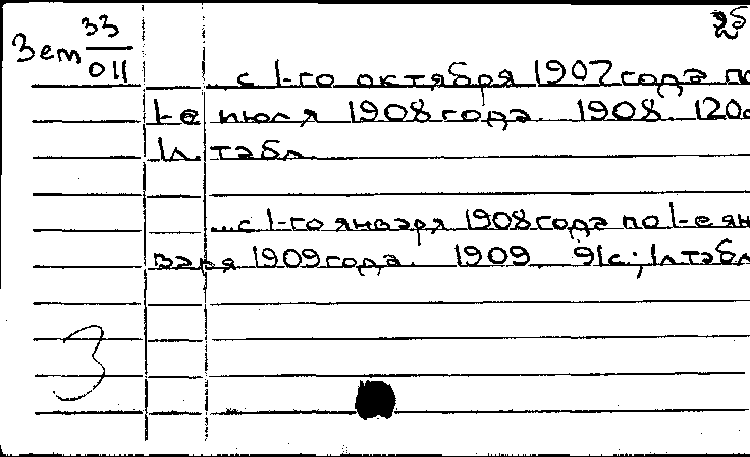 Зет 33
011
с 1-го октября 1907 года по
1-е июля 1908 года. 1908. 120с
1л. табл.
...с 1-го января 1908 года по 1-е ян
варя 1909 года. 1909. 91с.; 1л табл
3